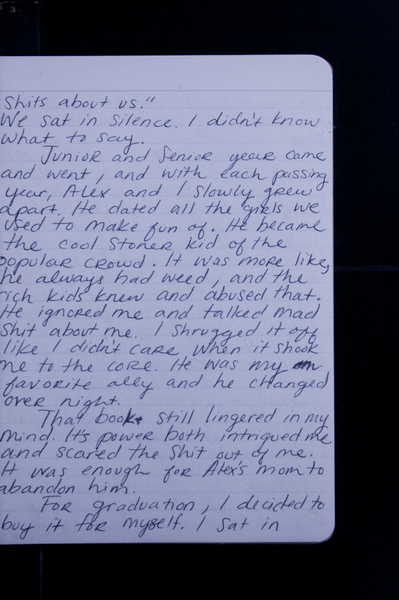 shits about us."
We sat in silence. I didn't know
what to say.
Junior and Senior year came
and went, and with each passing
year, Alex and I slowly grew
apart. He dated all the girls we
used to make fun of. He became
the cool stoner kid of the
popular crowd. It was more like,
he always had weed, and the
rich kids knew and abused that.
He ignored me and talked mad
shit about me. I shrugged it off
like I didn't care, when it shook
me to the core. He was my
favorite ally and he changed
over night.
That book still lingered in my
mind. It's power both intrigued me
and scared the shit out of me.
It was enough for Alex's mom to
abandon him.
For graduation, I decided to
buy it for myself. I sat in